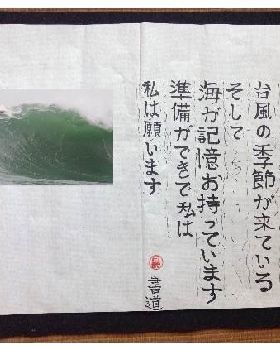 台風の季節が来ている
そして
海が記憶お持っています
準備ができで私は
私は願います
書道